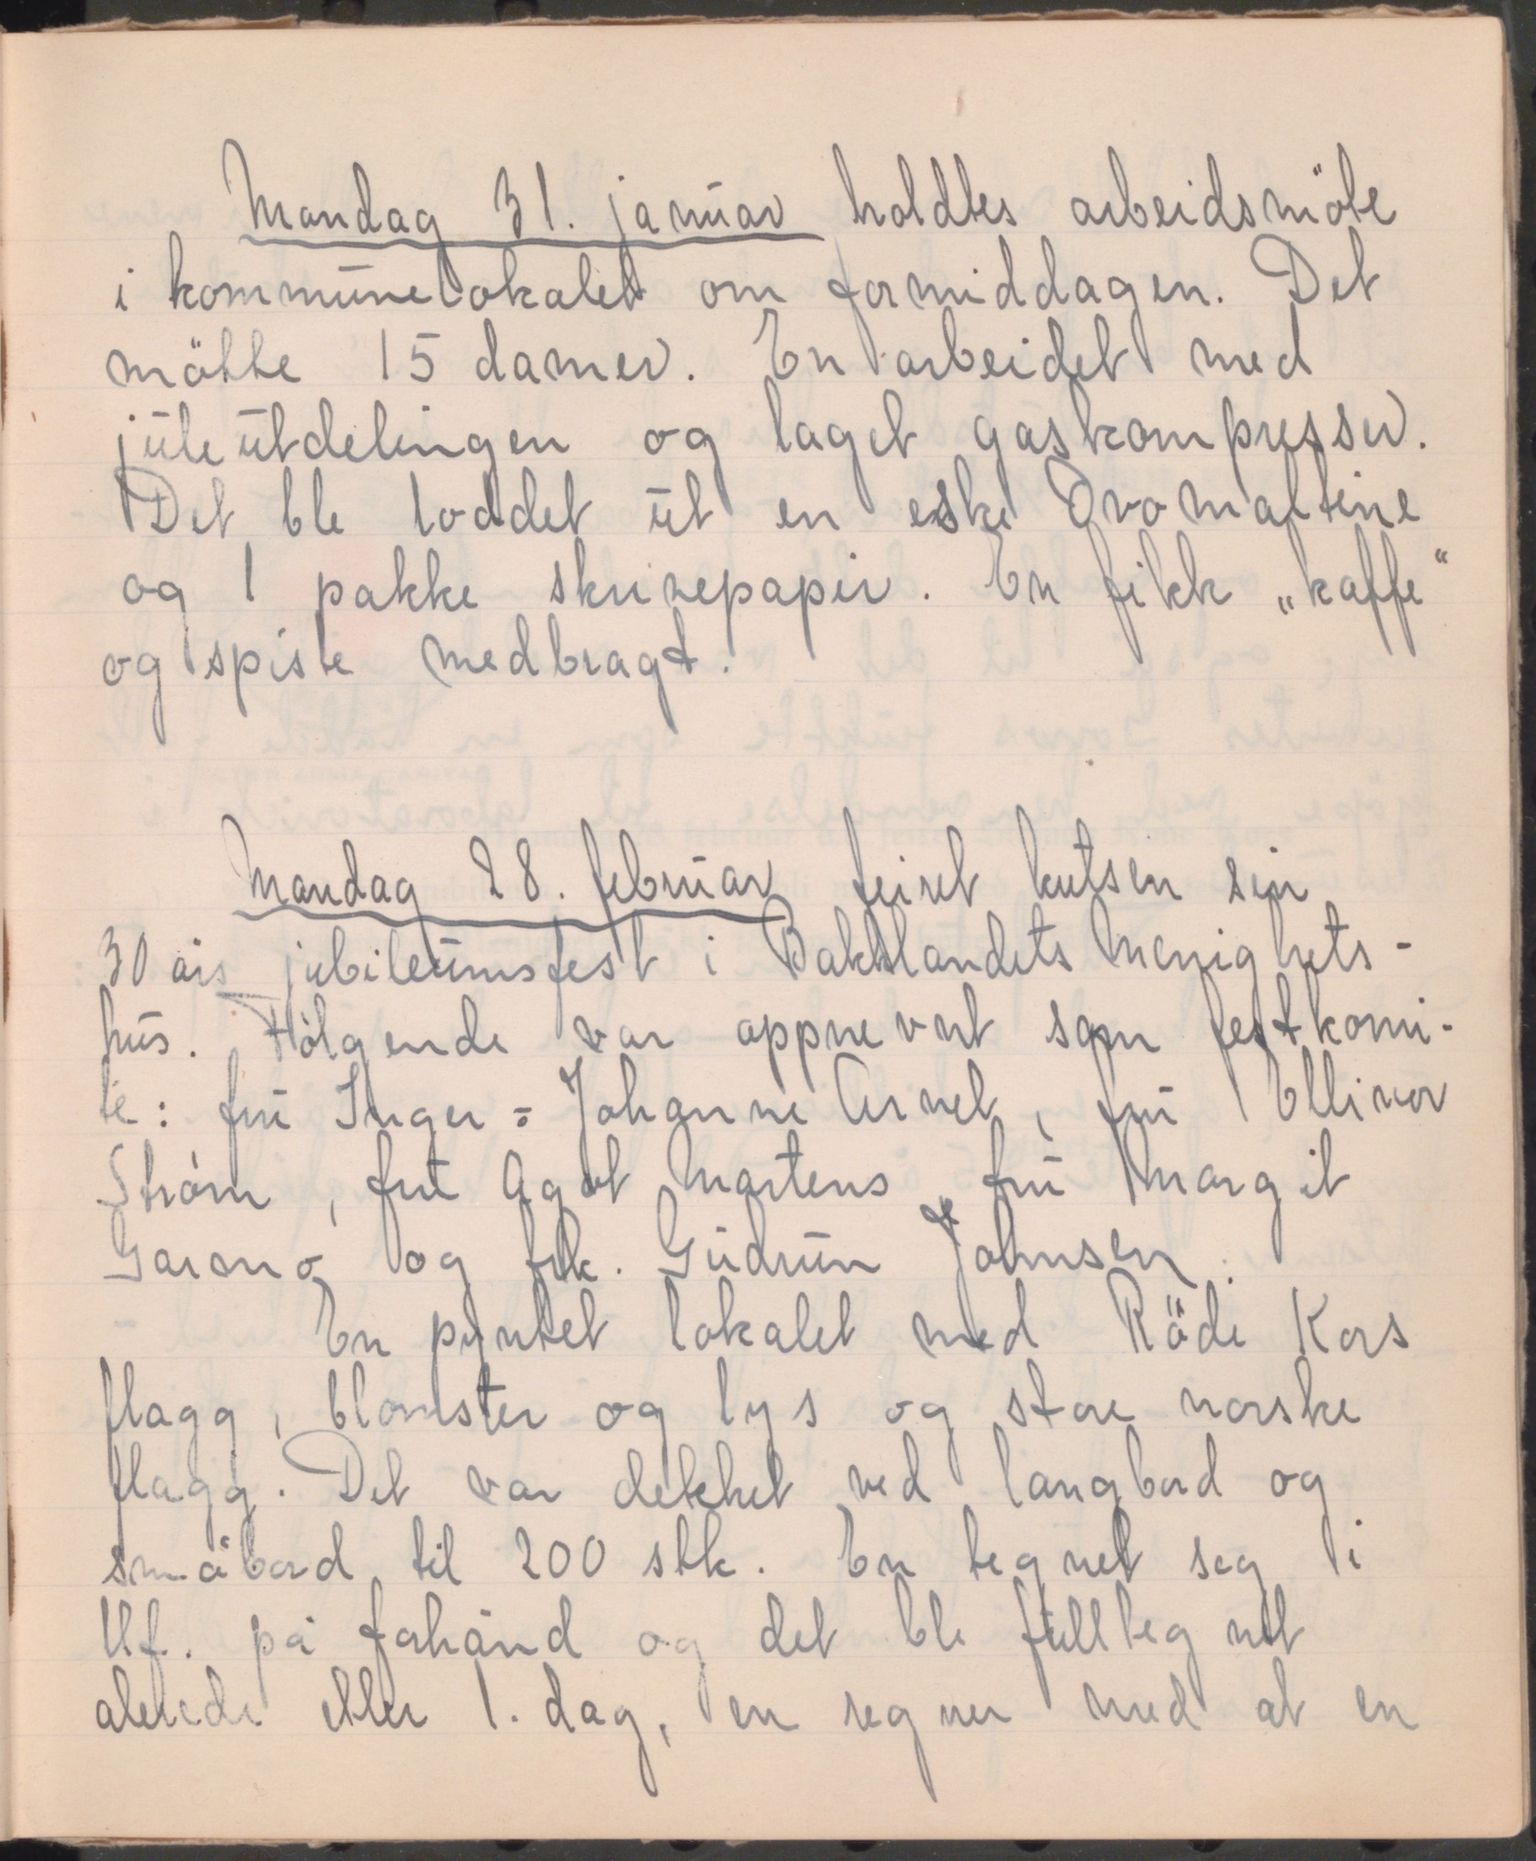 Mandag 31. januar holdtes arbeidsmöte
i kommunelokalet om formiddagen. Det
mötte 15 damer. En arbeidet med
juleutdelingen og laget gaskompresser.
Det ble loddet ut en eske Ovomaltine
og 1 pakke skrivepapir. En fikk „kaffe“
og spiste medbragt.
Mandag 28. februar feiret kretsen sin
30 års jubileumsfest i Baklandets Menighets-
hus. Fölgende var oppnevnt som festkomi-
te: fru Inger = Johanne Arnet, fru Ellinor
Ström, fru Agot Martens, fru Margit
Garmo og frk. Gudrun Johnsen.
En pyntet lokalet med Röde Kors
flagg, blomster og lys og store norske
flagg. Det var dekket ved langbord og
småbord til 200 stk. En tegnet seg i
tlf. på forhånd og det ble fulltegnet
alerede etter 1. dag, en regner med at en